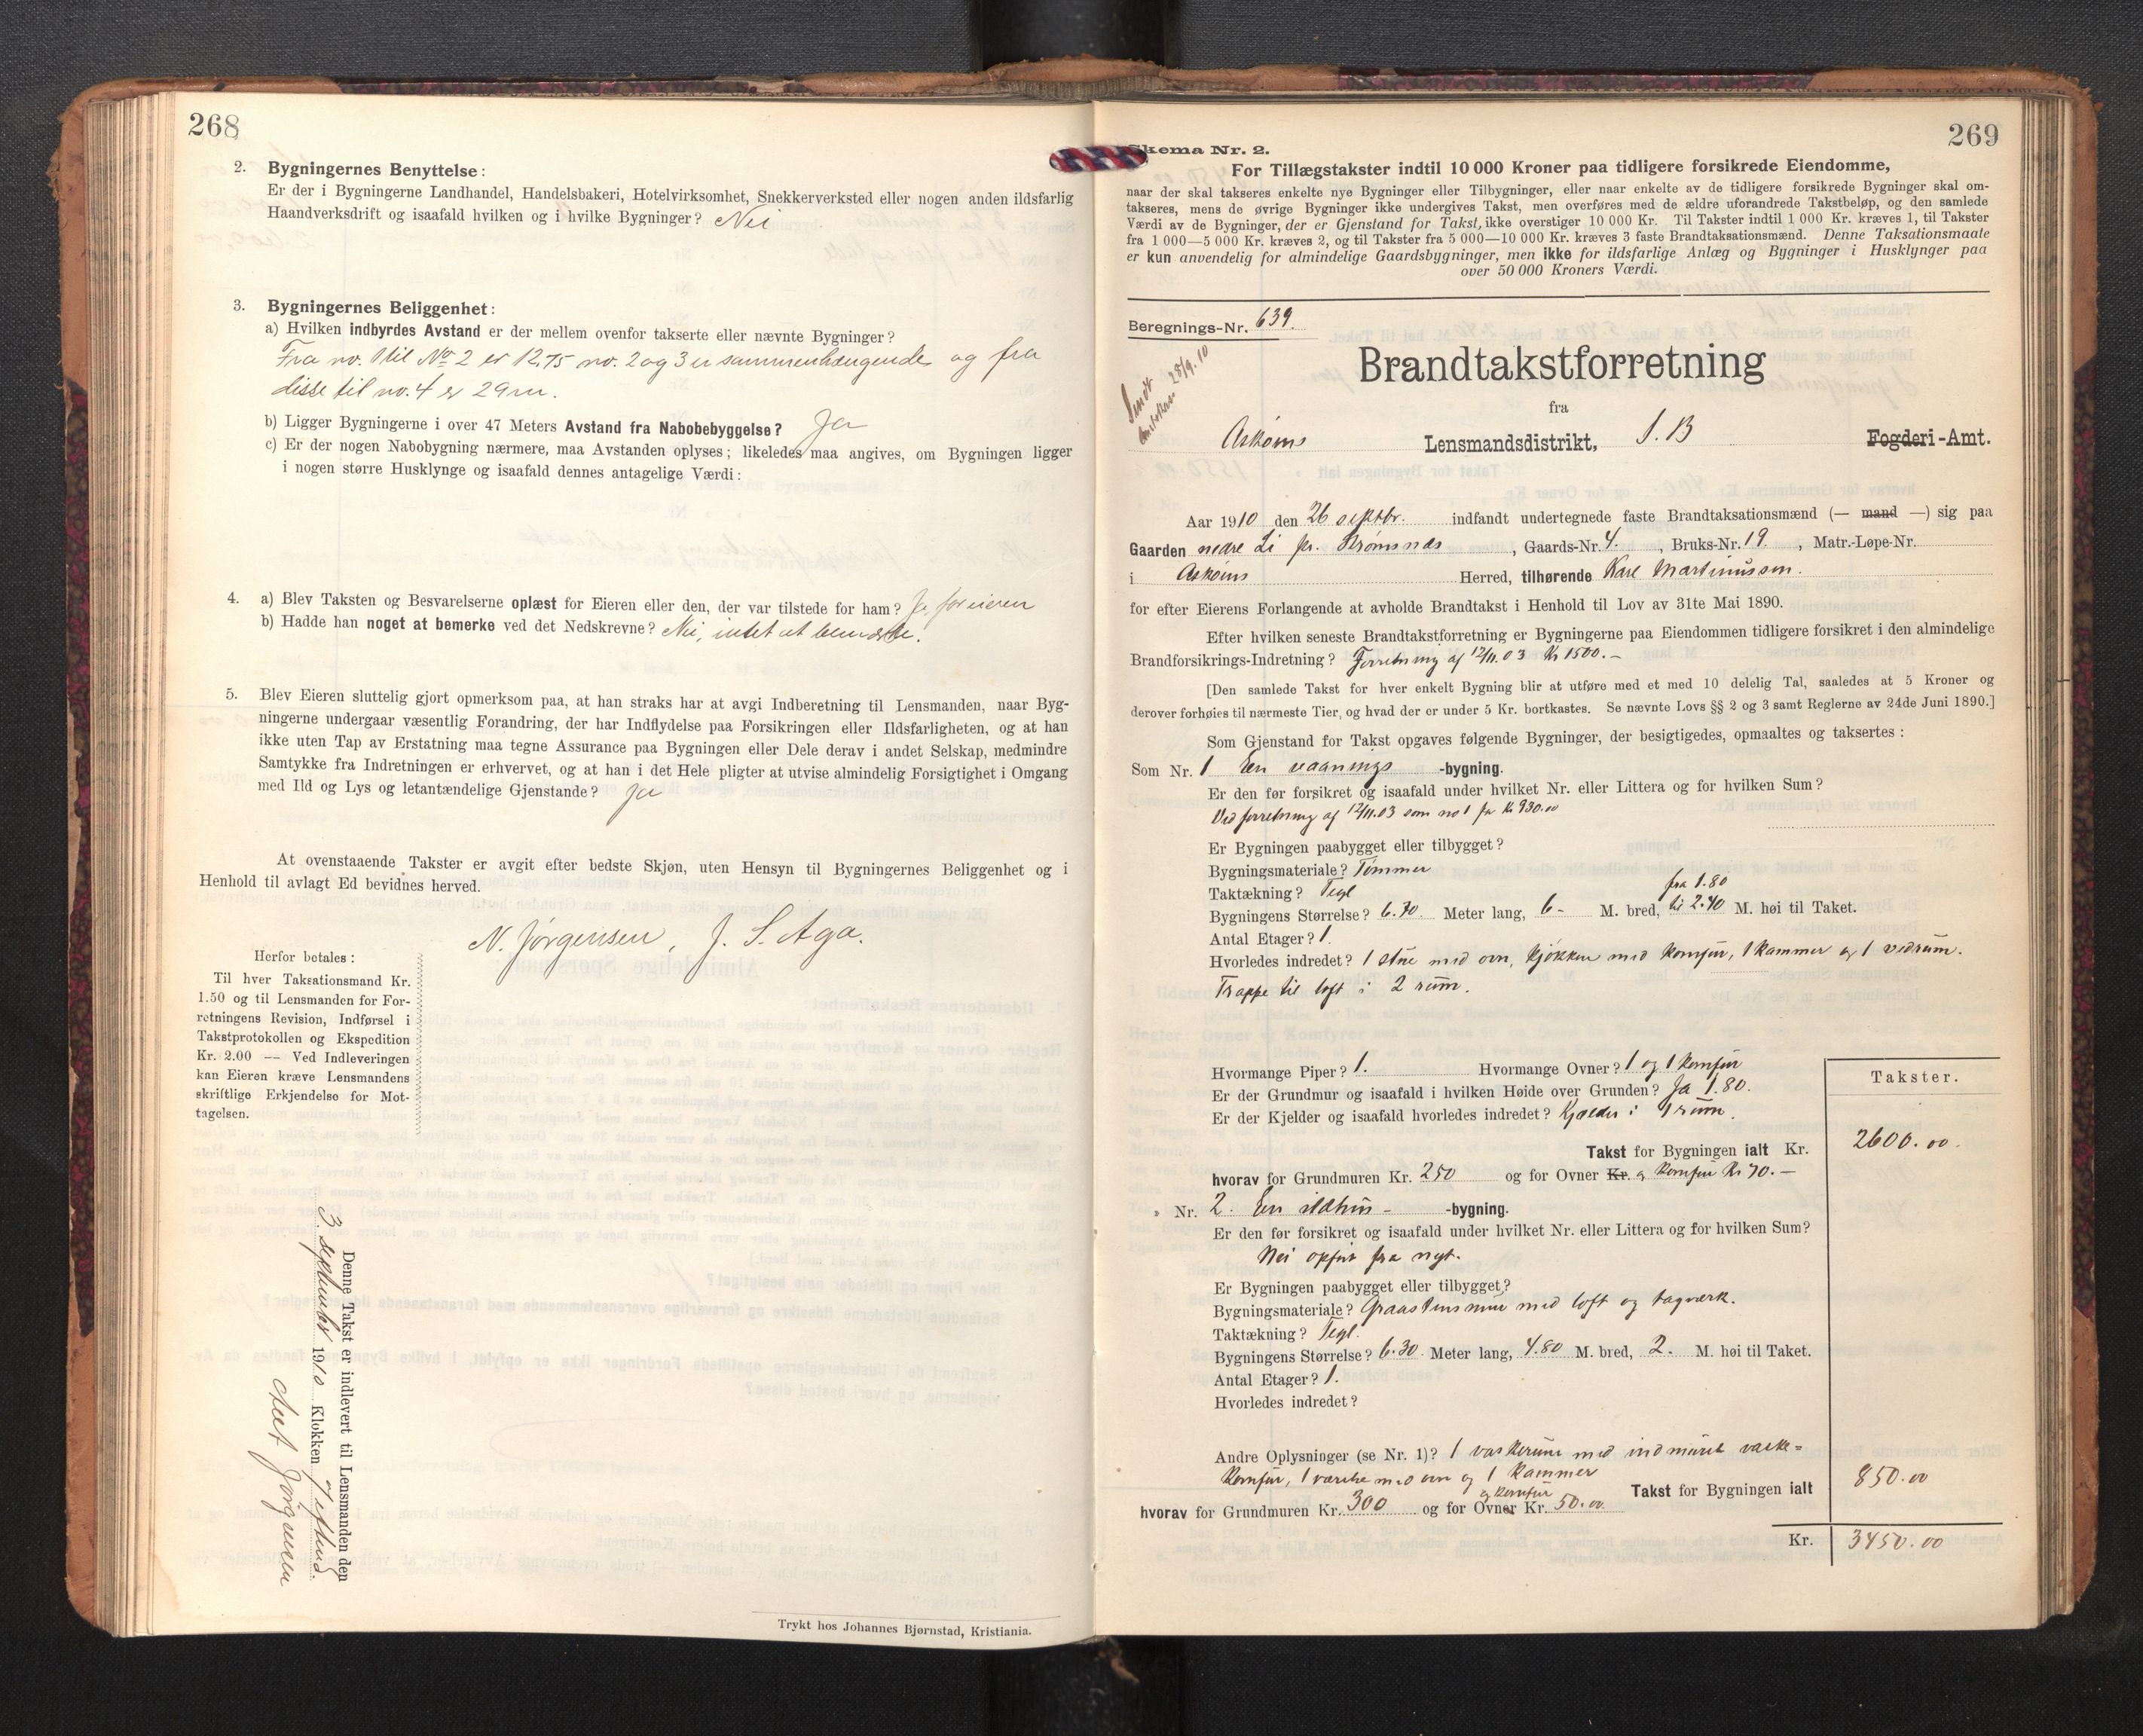 268
2. Bygningernes Benyttelse:
Er der i Bygningerne Landhandel, Handelsbakeri, Hotelvirksomhet, Snekkerverksted eller nogen anden ildsfarlig
Haandverksdrift og isaafald hvilken og i hvilke Bygninger? Nei
3. Bygningernes Beliggenhet:
a) Hvilken indbyrdes Avstand er der mellem ovenfor takserte eller nævnte Bygninger?
Fra no. 1 til No 2 er 12,75 no. 2 og 3 er sammenhængende og fra
disse til no. 4 er 29 m.
b) Ligger Bygningerne i over 47 Meters Avstand fra Nabobebyggelse? Ja
c) Er der nogen Nabobygning nærmere, maa Avstanden oplyses; likeledes maa angives, om Bygningen ligger
i nogen større Husklynge og isaafald dennes antagelige Værdi:
4. a) Blev Taksten og Besvarelserne oplæst for Eieren eller den, der var tilstede for ham? Ja, for eieren
b) Hadde han noget at bemerke ved det Nedskrevne? Nei, intet at bemærke.
5. Blev Eieren sluttelig gjort opmerksom paa, at han straks har at avgi Indberetning til Lensmanden, naar Byg-
ningerne undergaar væsentlig Forandring, der har Indflydelse paa Forsikringen eller Ildsfarligheten, og at han
ikke uten Tap av Erstatning maa tegne Assurance paa Bygningen eller Dele derav i andet Selskap, medmindre
Samtykke fra Indretningen er erhvervet, og at han i det Hele pligter at utvise almindelig Forsigtighet i Omgang
med Ild og Lys og letantændelige Gjenstande? Ja
At ovenstaaende Takster er avgit efter bedste Skjøn, uten Hensyn til Bygningernes Beliggenhet og i
Henhold til avlagt Ed bevidnes herved.
N. Jørgensen, J. S. Aga.
Herfor betales:
Til hver Taksationsmand Kr.
1.50 og til Lensmanden for For-
retningens Revision, Indførsel i
Takstprotokollen og Ekspedition
Kr. 2.00 — Ved Indleveringen
kan Eieren kræve Lensmandens
skriftlige Erkjendelse for Mot-
tagelsen.
Denne Takst er indlevert til Lensmanden den
3. september 1910 Klokken 7 efmd.
Jørgensen
Trykt hos Johannes Bjørnstad, Kristiania.
269
Skema Nr. 2.
For Tillægstakster indtil 10 000 Kroner paa tidligere forsikrede Eiendomme,
naar der skal takseres enkelte nye Bygninger eller Tilbygninger, eller naar enkelte av de tidligere forsikrede Bygninger skal om-
takseres, mens de øvrige Bygninger ikke undergives Takst, men overføres med de ældre uforandrede Takstbeløp, og den samlede
Værdi av de Bygninger, der er Gjenstand for Takst, ikke overstiger 10 000 Kr. Til Takster indtil 1 000 Kr. kræves 1, til Takster
fra 1 000—5 000 Kr. kræves 2, og til Takster fra 5 000—10 000 Kr. kræves 3 faste Brandtaksationsmænd. Denne Taksationsmaate
er kun anvendelig for almindelige Gaardsbygninger, men ikke for ildsfarlige Anlæg og Bygninger i Husklynger paa
over 50 000 Kroners Værdi.
Beregnings-Nr. 639.
Sendt 28/9.10
Brandtakstforretning
fra
Askøens Lensmandsdistrikt, S. B Fogderi-Amt.
Aar 1910 den 26 septbr. indfandt undertegnede faste Brandtaksationsmænd (— mand —) sig paa
Gaarden nedre Li pr. Strømsnes, Gaards-Nr. 4., Bruks-Nr. 19., Matr.-Løpe-Nr.
i Askøens Herred, tilhørende Karl Martinussen.
for efter Eierens Forlangende at avholde Brandtakst i Henhold til Lov av 31te Mai 1890.
Efter hvilken seneste Brandtakstforretning er Bygningerne paa Eiendommen tidligere forsikret i den almindelige
Brandforsikrings-Indretning? Forretning af 12/11.03 Kr 1500.-
[Den samlede Takst for hver enkelt Bygning blir at utføre med et med 10 delelig Tal, saaledes at 5 Kroner og
derover forhøies til nærmeste Tier, og hvad der er under 5 Kr. bortkastes. Se nævnte Lovs §§ 2 og 3 samt Reglerne av 24de Juni 1890.]
Som Gjenstand for Takst opgaves følgende Bygninger, der besigtigedes, opmaaltes og taksertes:
Som Nr. 1 En vaanings-bygning.
Er den før forsikret og isaafald under hvilket Nr. eller Littera og for hvilken Sum?
Ved forretning af 12/11.03 som no 1 for Kr 930.00
Er Bygningen paabygget eller tilbygget?
Bygningsmateriale? Tømmer
Taktækning? Tegl
fra 1.80
Bygningens Størrelse? 6.70 Meter lang, 6- M. bred, til 2.40 M. høi til Taket.
Antal Etager? 1.
Hvorledes indredet? 1 stue med ovn, kjøkken med komfur, 1 kammer og 1 vedrum.
Trappe til loft i 2 rum.
Hvormange Piper? 1. Hvormange Ovner? 1 og 1 komfur
Er der Grundmur og isaafald i hvilken Høide over Grunden? Ja 1.80.
Er der Kjelder og isaafald hvorledes indredet? Kjælder i 1 rum.
Takster.
Takst for Bygningen ialt Kr. 2600.00
hvorav for Grundmuren Kr. 250 og for Ovner Kr. og komfur Kr 70.—
" Nr. 2. En ildhus--bygning.
Er den før forsikret og isaafald under hvilket Nr. eller Littera og for hvilken Sum?
Nei opført fra nyt.
Er Bygningen paabygget eller tilbygget?
Bygningsmateriale? Graastensmur med loft og tagværk.
Taktækning? Tegl.
Bygningens Størrelse? 6.30 Meter lang, 4.80 M. bred, 2. M. høi til Taket.
Antal Etager? 1.
Hvorledes indredet?
Andre Oplysninger (se Nr. 1)? 1 vaskerum med indmuret vaske=
komfur, 1 værelse med ovn og 1 kammer
Takst for Bygningen ialt 850.00
og komfur
hvorav for Grundmuren Kr. 300 og for Ovner Kr. 50.00
Kr. 3450.00